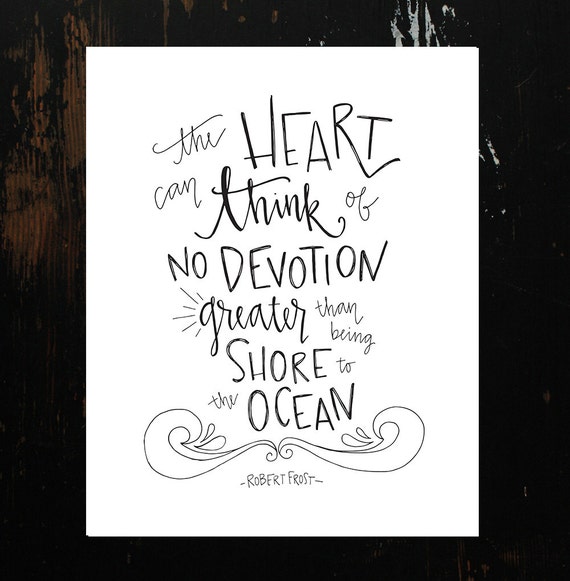 the HEART
can think of
NO DEVOTION
greater than being
SHORE to
the OCEAN
-ROBERT FROST-